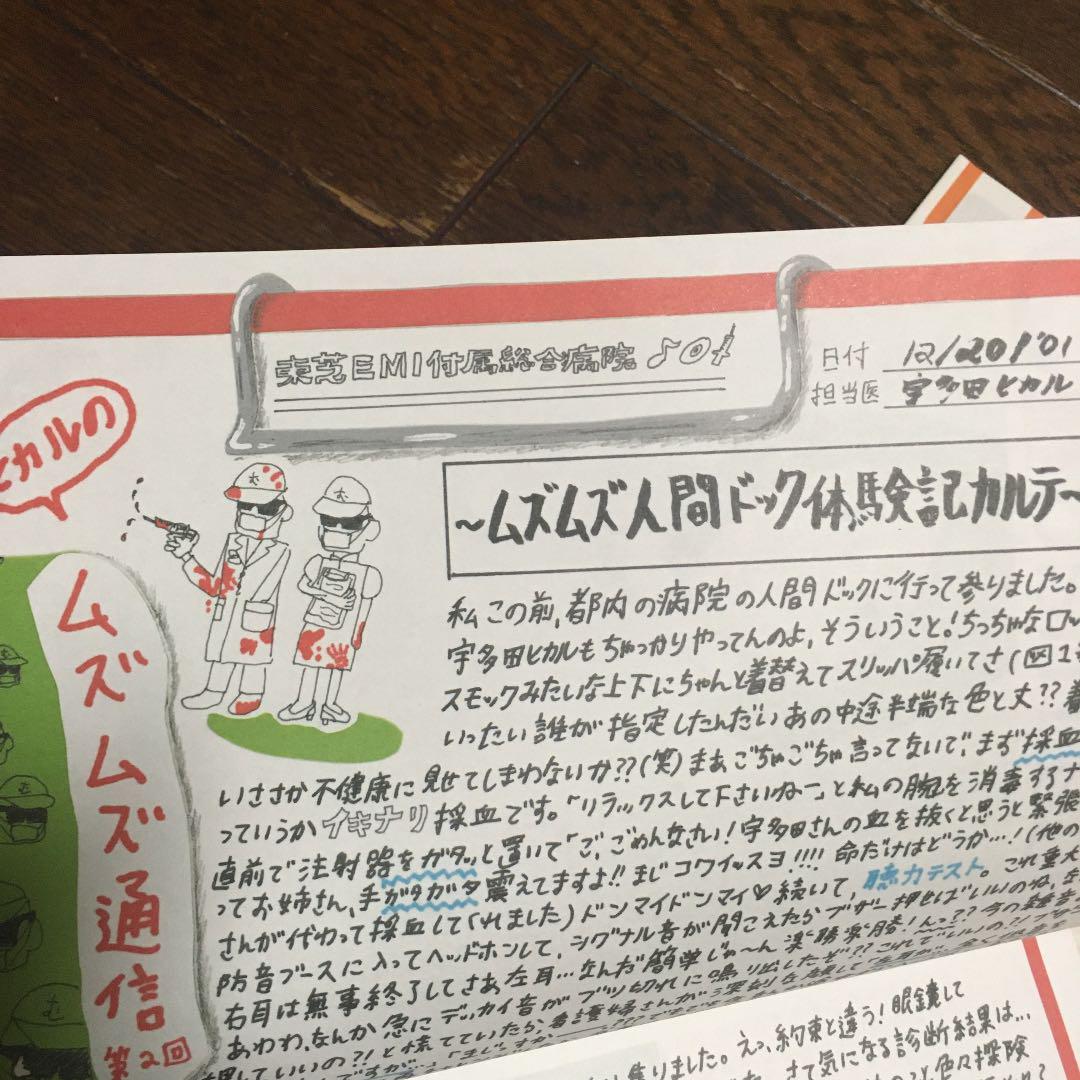 東芝EMI付属総合病院
日付 12/20/'01
担当医 宇多田ヒカル
ヒカルの
ムズムズ通信
第2回
~ムズムズ人間ドック体験記カルテ~
私この前、都内の病院の人間ドックに行って参りました。
宇多田ヒカルもちゃっかりやってんのよ、そういうこと!ちっちゃなロッ
スモックみたいな上下にちゃんと着替えてスリッパ履いてさ(図1
いったい誰が指定したんだいあの中途半端な色と丈??着
いささか不健康に見せてしまわないか??(笑)まぁごちゃごちゃ言ってないで、まず採血
っていうかイキナリ採血です。「リラックスして下さいねー」と私の腕を消毒するナ
直前で注射器をガタッと置いて「ご、ごめんなさい!宇多田さんの血を抜くと思うと緊張
ってお姉さん、手がガタガタ震えてますよ!!まじコワイッスヨ!!!!命だけはどうか…!(他の
さんが代わって採血してくれました)ドンマイドンマイ♡続いて、聴力テスト。これ重大
防音ブースに入ってヘッドホンして、シグナル音が聞こえたらブザー押せばいいのね、
右耳は無事終了してさあ左耳…なんだ簡単じゃ〜ん楽勝楽勝!んっ??今の雑音
あわわ、なんか急にデッカイ音がブツ切れに鳴り出したぞ??これでいいの?!ブザー
押していいの?!と慌てていたら、看護婦さんが深刻な顔して
焦りました。えっ、約束と違う!眼鏡して
さて気になる診断結果は…
色々探険